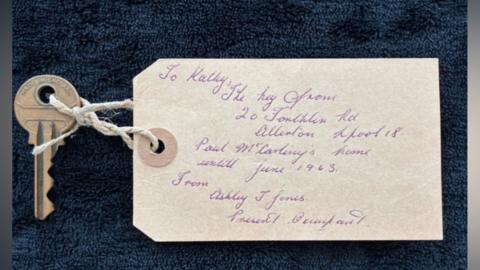 To Kathy,
The key from
20 Forthlin Rd
Allerton Lpool 18.
Paul McCartney's home
untill June 1963.
From
Ashley T Jones
Present Occupant